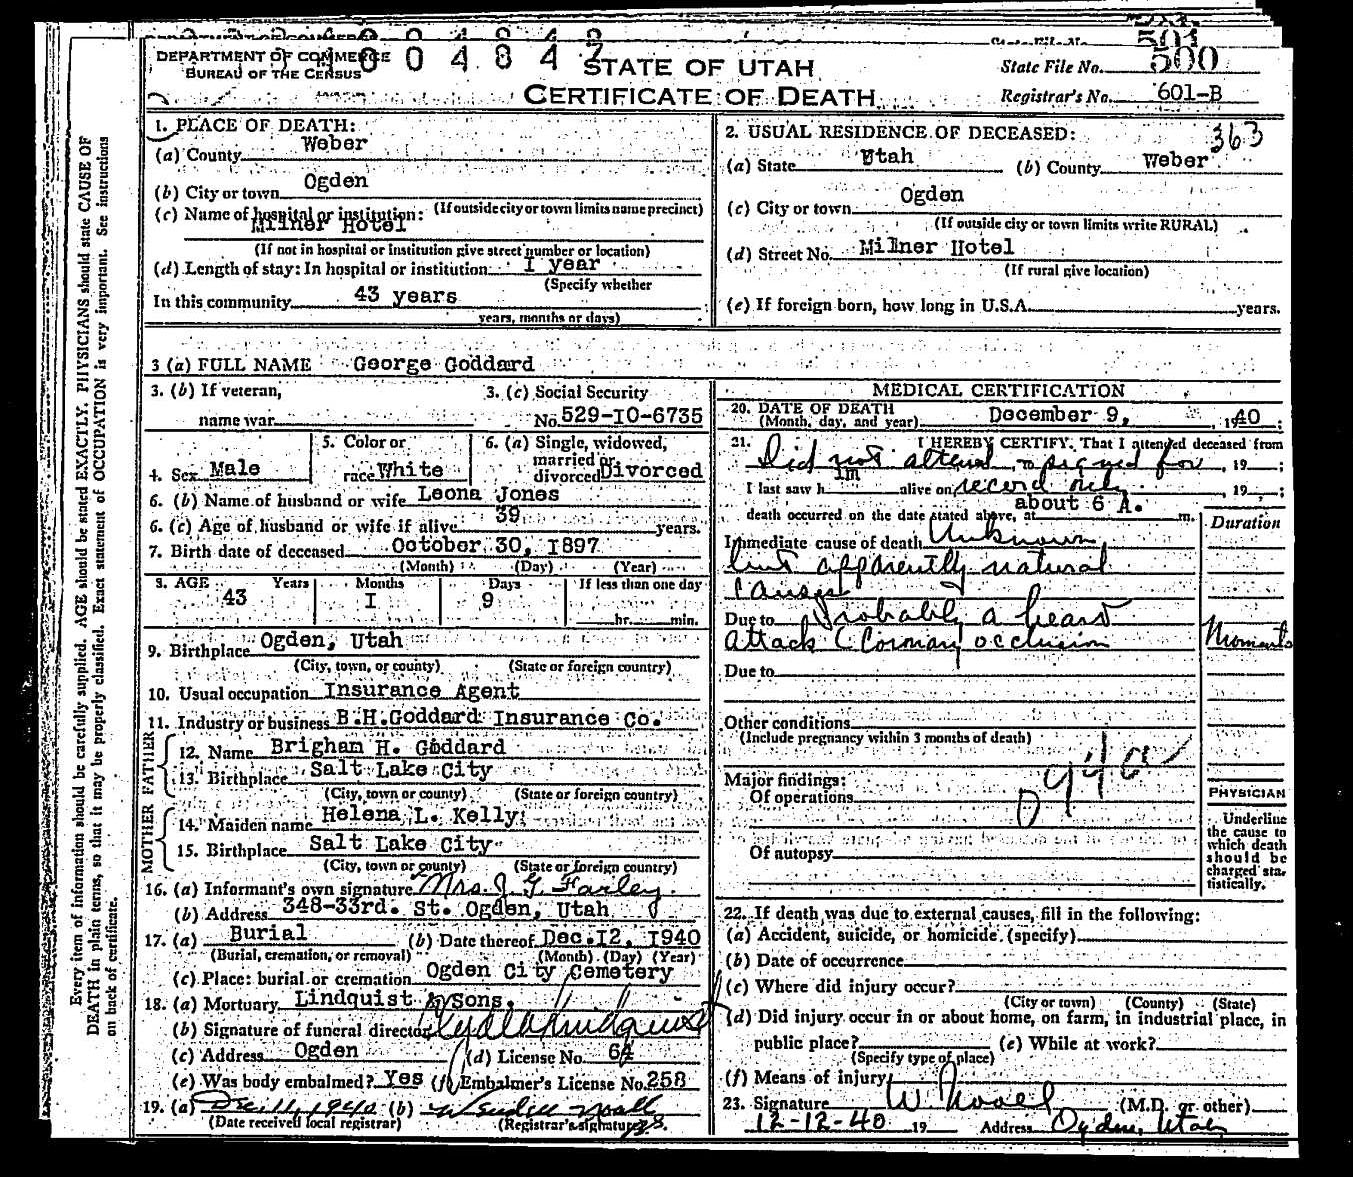 501
DEPARTMENT OF COMMERCE
BUREAU OF THE CENSUS
004847
STATE OF UTAH
CERTIFICATE OF DEATH
State File No. 500
Registrar's No. 601-B
Every item of information should be carefully supplied. AGE should be stated EXACTLY. PHYSICIANS should state CAUSE OF
DEATH in plain terms, so that it may be properly classified. Exact statement of OCCUPATION is very important. See instructions
on back of certificate.
1. PLACE OF DEATH:
(a) County Weber
(b) City or town Ogden
(If outside city or town limits name precinct)
(c) Name of hospital or institution:
Milner Hotel
(If not in hospital or institution give street number or location)
(d) Length of stay: In hospital or institution I year
(Specify whether
In this community 43 years
years, months or days)
2. USUAL RESIDENCE OF DECEASED:
363
(a) State Utah (b) County Weber
(c) City or town Ogden
(If outside city or town limits write RURAL)
(d) Street No. Milner Hotel
(If rural give location)
(e) If foreign born, how long in U.S.A. years.
3 (a) FULL NAME George Goddard
3. (b) If veteran,
name war
3. (c) Social Security
No. 529-I0-6735
4. Sex Male
5. Color or
race White
6. (a) Single, widowed,
married or
divorced Divorced
6. (b) Name of husband or wife Leona Jones
6. (c) Age of husband or wife if alive 39 years.
7. Birth date of deceased October 30, I897
(Month) (Day) (Year)
8. AGE Years Months Days If less than one day
43 I 9 hr. min.
9. Birthplace Ogden, Utah
(City, town, or county) (State or foreign country)
10. Usual occupation Insurance Agent
11. Industry or business B.H.Goddard Insurance Co.
FATHER
12. Name Brigham H. Goddard
13. Birthplace Salt Lake City
(City, town or county) (State or foreign country)
MOTHER
14. Maiden name Helena L. Kelly
15. Birthplace Salt Lake City
(City, town or county) (State or foreign country)
16. (a) Informant's own signature Mrs. J. G. Farley
(b) Address 348-33rd. St. Ogden, Utah
17. (a) Burial (b) Date thereof Dec.I2, I940
(Burial, cremation, or removal) (Month) (Day) (Year)
(c) Place: burial or cremation Ogden City Cemetery
18. (a) Mortuary Lindquist & Sons.
(b) Signature of funeral director
(c) Address Ogden (d) License No. 64
(e) Was body embalmed? Yes (f) Embalmer's License No. 258
19. (a) Dec. 11, 1940 (b)
(Date received local registrar) (Registrar's signature)
MEDICAL CERTIFICATION
20. DATE OF DEATH
(Month, day, and year) December 9, , 1940
21. I HEREBY CERTIFY, That I attended deceased from
Did not attend signed for , 19 ;
I last saw h im alive on record only , 19 ;
death occurred on the date stated above, at about 6 A. m.
Duration
Immediate cause of death Unknown,
but apparently natural
causes
Due to Probably a heart
attack (Coronary occlusion
Moments
Due to
Other conditions
(Include pregnancy within 3 months of death)
94a
Major findings:
Of operations
Of autopsy
PHYSICIAN
Underline
the cause to
which death
should be
charged sta-
tistically.
22. If death was due to external causes, fill in the following:
(a) Accident, suicide, or homicide (specify)
(b) Date of occurrence
(c) Where did injury occur?
(City or town) (County) (State)
(d) Did injury occur in or about home, on farm, in industrial place, in
public place? (e) While at work?
(Specify type of place)
(f) Means of injury
23. Signature (M.D. or other)
12-12-40 19 Address Ogden, Utah